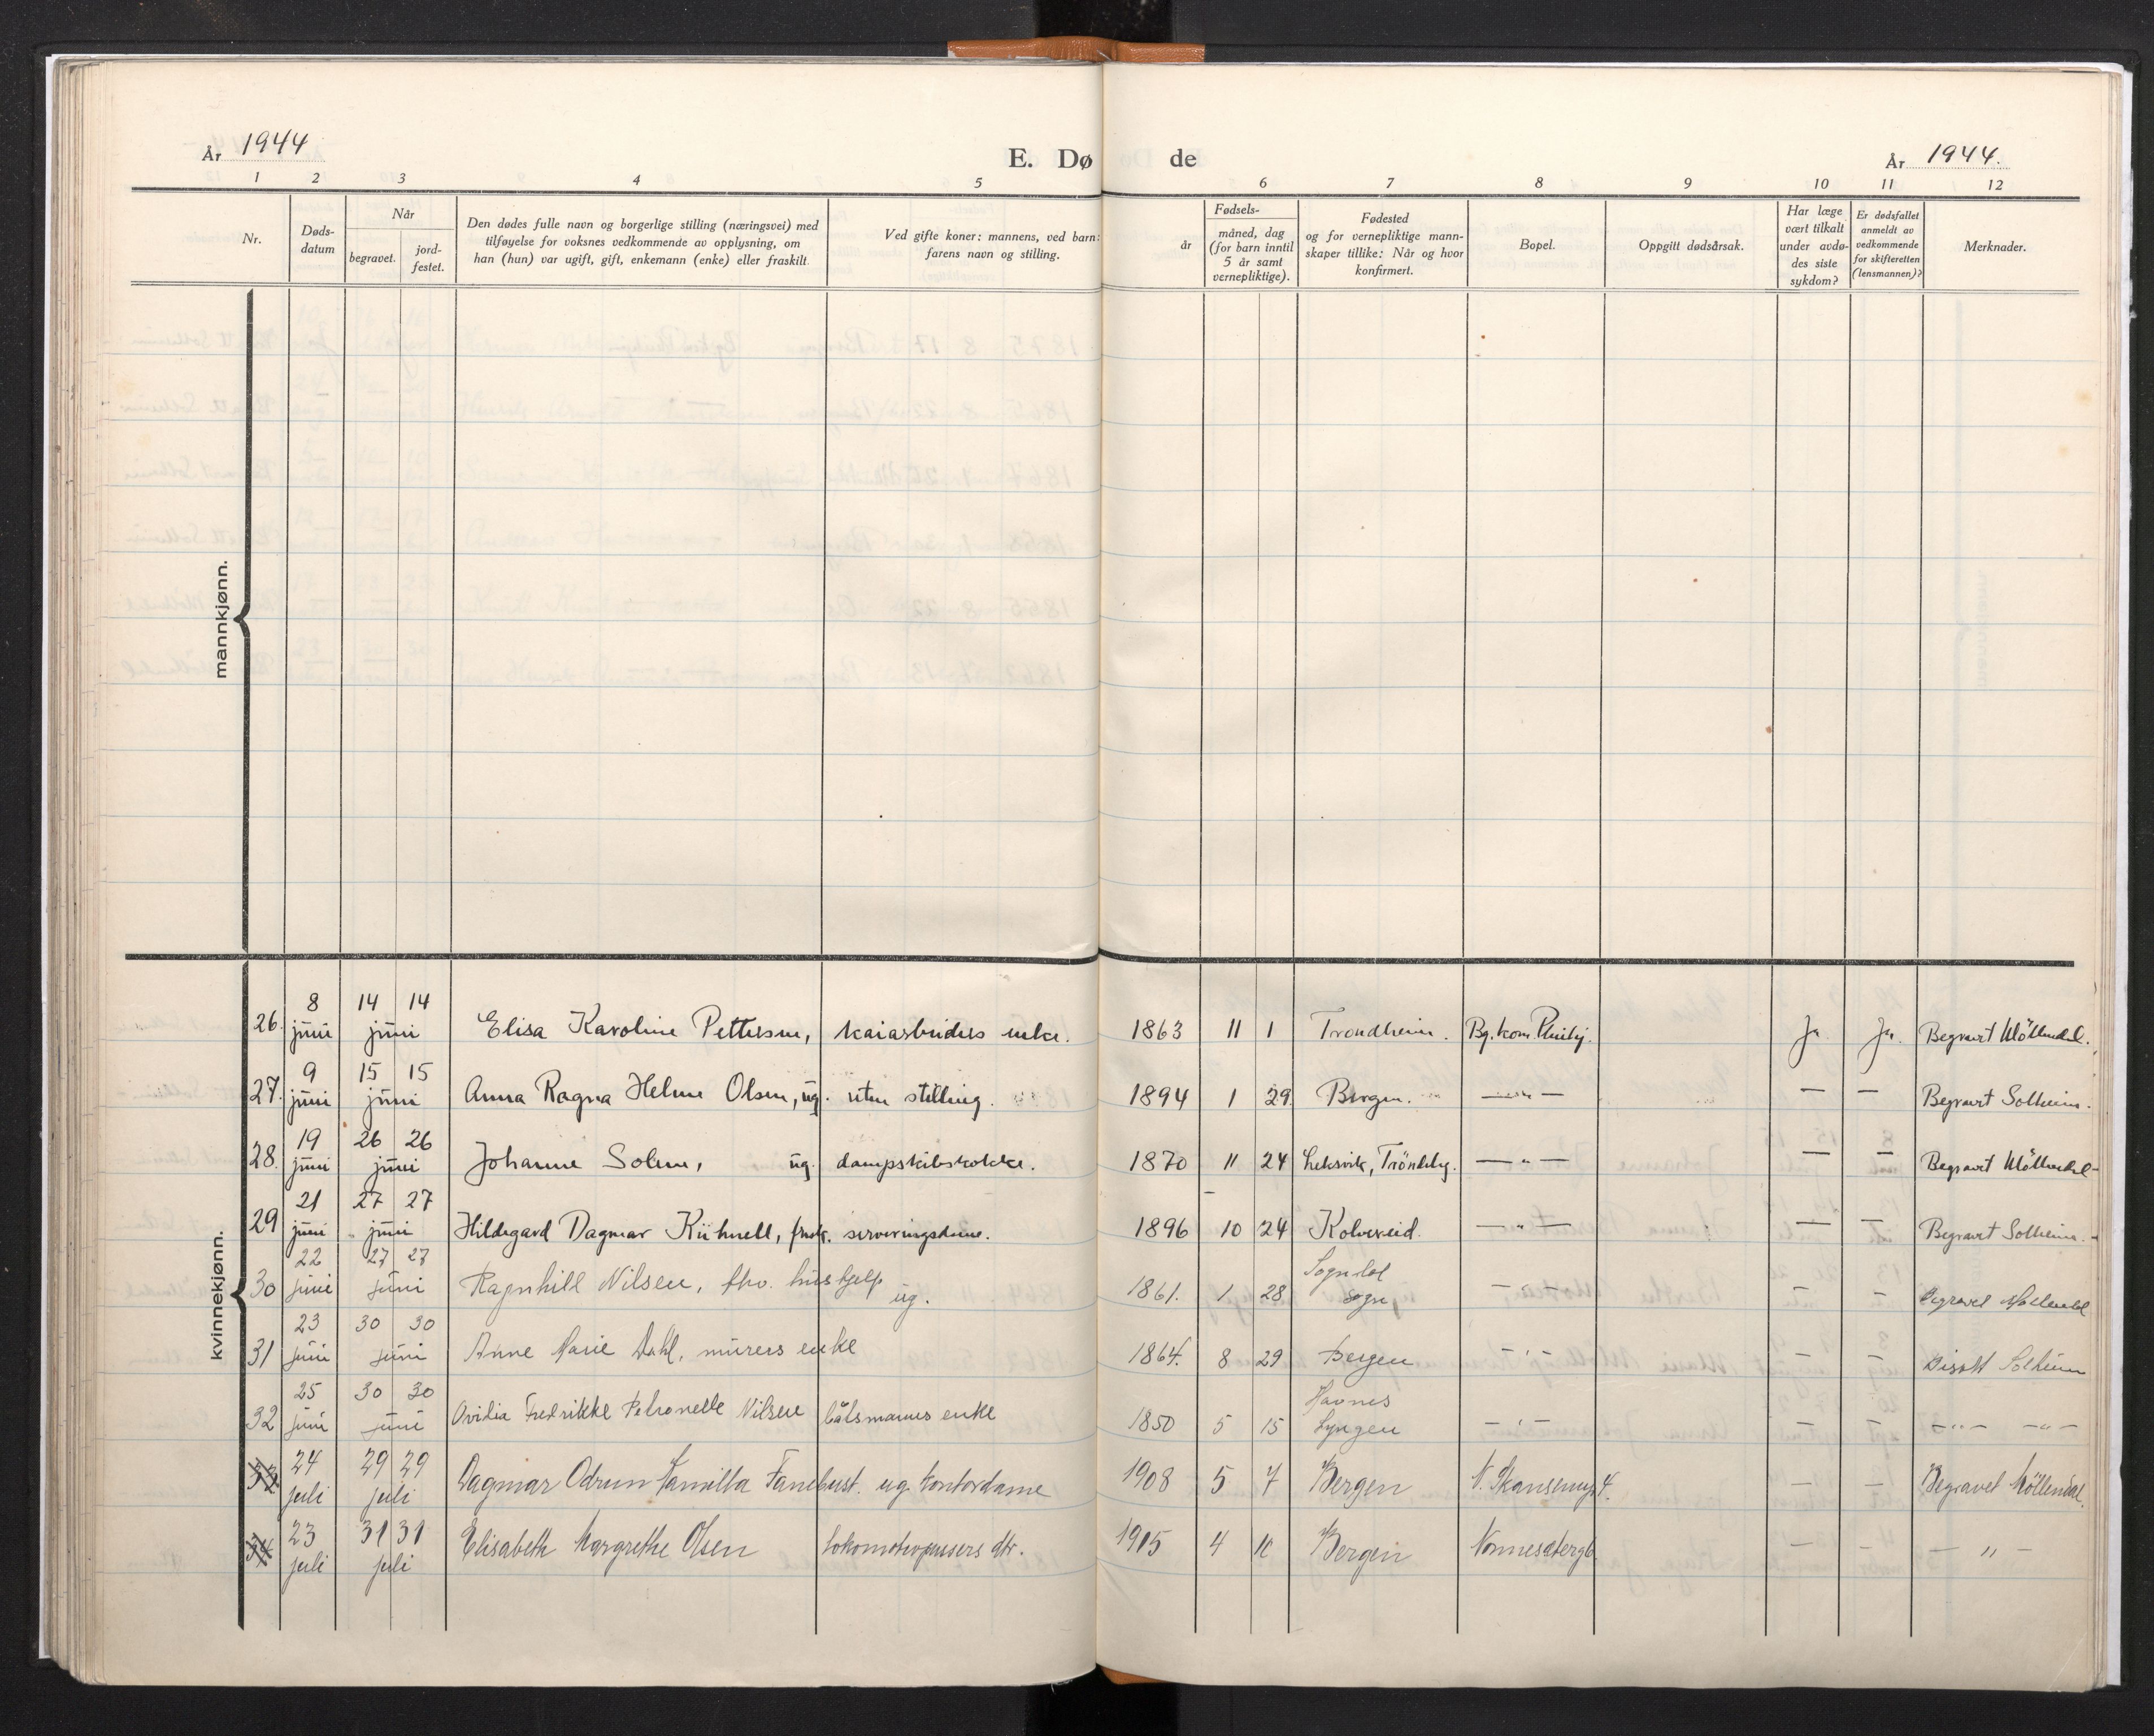 År 1944
E. Døde
År 1944.
1 2 3 4 5 6 7 8 9 10 11 12
Nr.
Døds-
datum
Når
begravet.
jord-
festet.
Den dødes fulle navn og borgerlige stilling (næringsvei) med
tilføyelse for voksnes vedkommende av opplysning, om
han (hun) var ugift, gift, enkemann (enke) eller fraskilt.
Ved gifte koner: mannens, ved barn:
farens navn og stilling.
Fødsels-
år
måned, dag
(for barn inntil
5 år samt
vernepliktige).
Fødested
og for vernepliktige mann-
skaper tillike: Når og hvor
konfirmert.
Bopel.
Oppgitt dødsårsak.
Har læge
vært tilkalt
under avdø-
des siste
sykdom?
Er dødsfallet
anmeldt av
vedkommende
for skifteretten
(lensmannen)?
Merknader.
mannkjønn.
kvinnekjønn.
8 14 14
26. juni juni Elisa Karoline Pettersen, kaiarbeiders enke. 1863 11 1 Trondheim. Bg. kom. Pleiehj. Ja Ja. Begravet Möllendal.
9 15 15
27. juni juni Anna Ragna Helene Olsen, ug. uten stilling. 1894 1 29 Bergen. — " — — — Begravet Solheim.
19 26 26
28. juni juni Johanne Solem, ug. dampskibskokke. 1870 11 24 Leksvik, Tröndelag. — " — — — Begravet Möllendal
21 27 27
29 juni juni Hildegard Dagmar Kühnell, frask. serveringsdame. 1896 10 24 Kolvereid. — " — — — Begravet Solheim.
22 27 27 Sogndal
30 juni juni Ragnhill Nilsen, fhv. hushjelp ug. 1861. 1 28 Sogn, — " — — — Begravet Möllendal
23 30 30
31 juni juni Anne Marie Dahl, murers enke 1864. 8 29 Bergen — " — — — Bisatt Solheim
25 30 30 Havnes
32 juni juni Ovidia Fredrikke Petronelle Nilsen båtsmanns enke 1850 5 15 Lyngen — " — — — — " — — " —
24 29 29
33 juli juli Dagmar Odrun Kamilla Fanebust. ug. kontordame 1908 5 7 Bergen N. Skansemyr 4. — — Begravet Möllendal.
23 31 31
34 juli juli Elisabeth Margrethe Olsen lokomotivpussers dtr. 1915 4 10 Bergen Nonnesetergt — — — " —